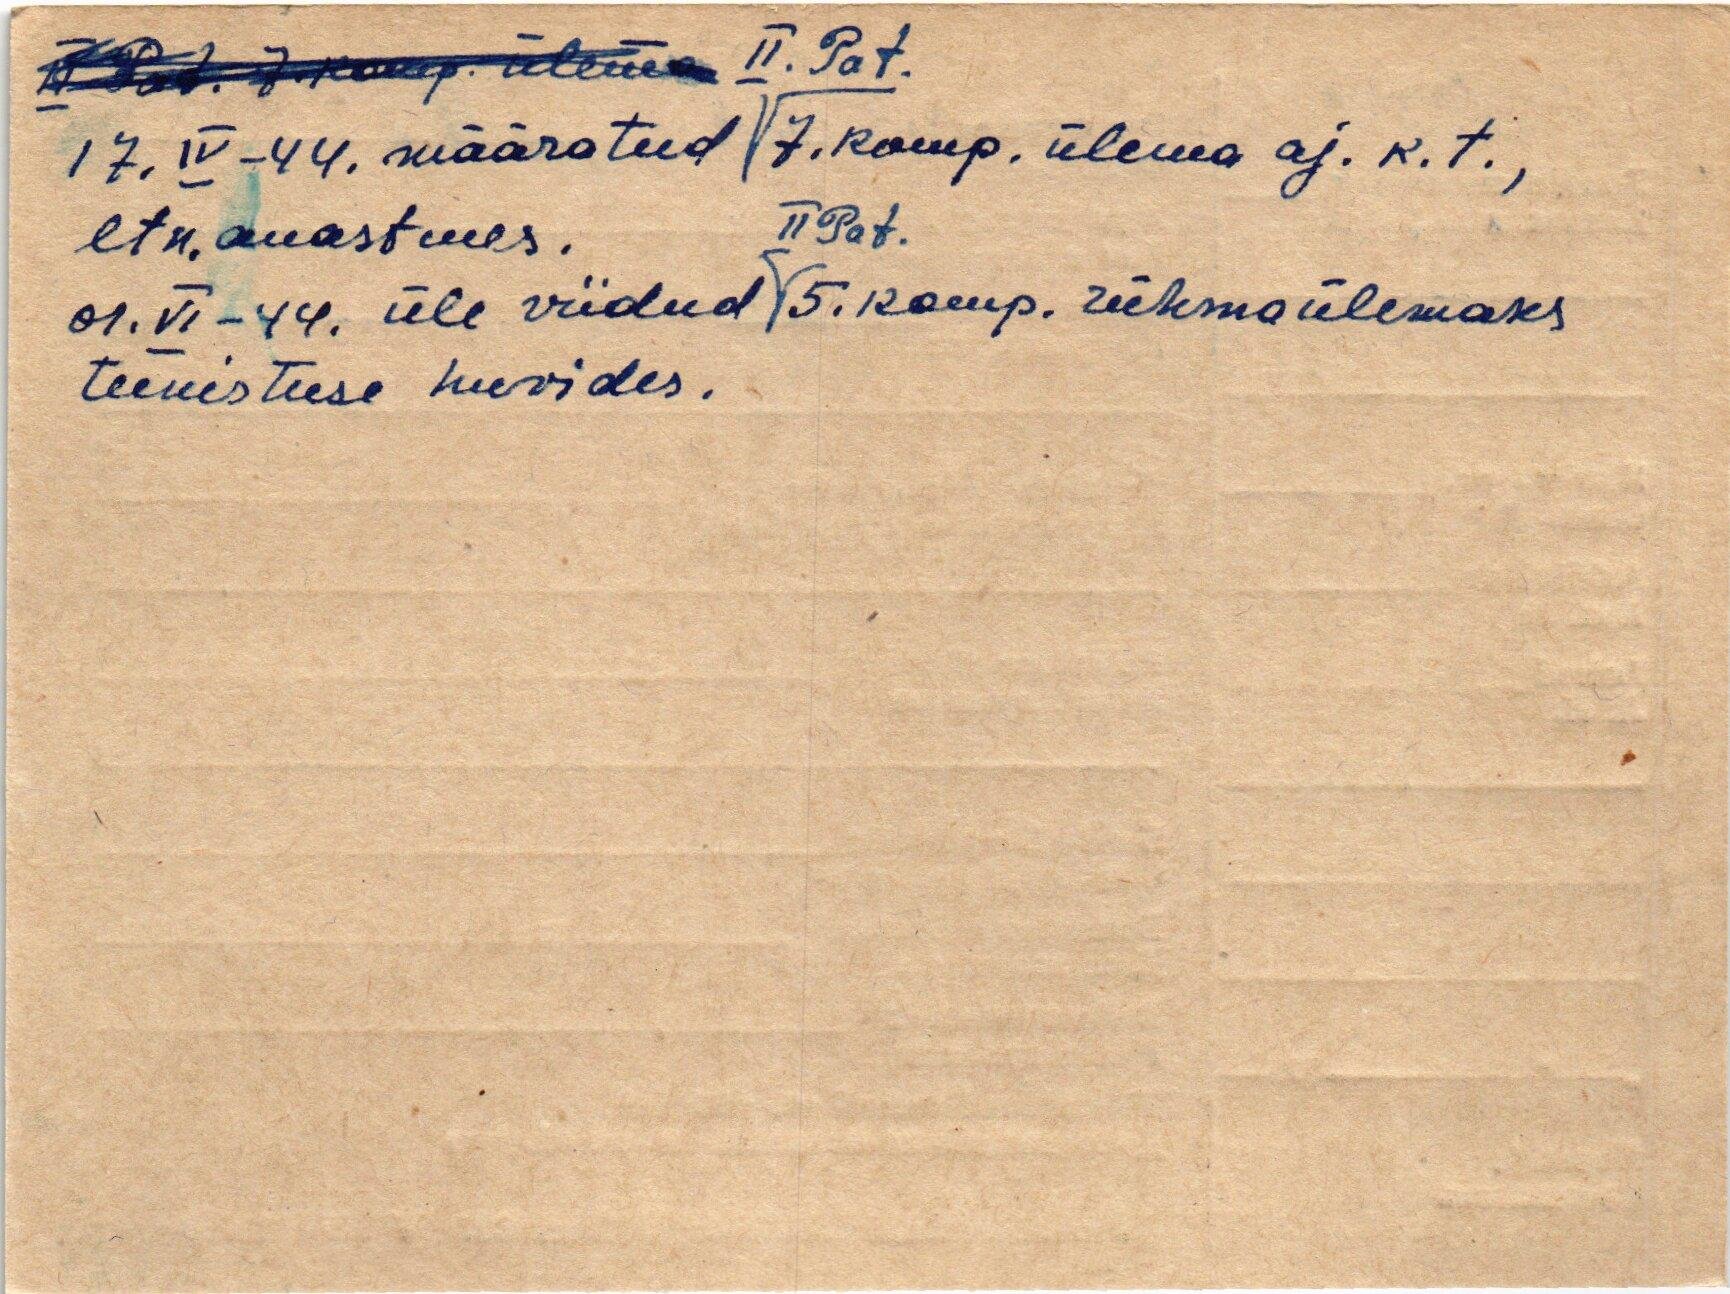 II Pat. 7. komp. ülema II. Pat.
17. IV -44. määratud 7. komp. ülema aj. k. t.,
etn. auastmes. II Pat.
01. VI -44. üle viidud 5. komp. rühmaülemaks
teenistuse huvides.